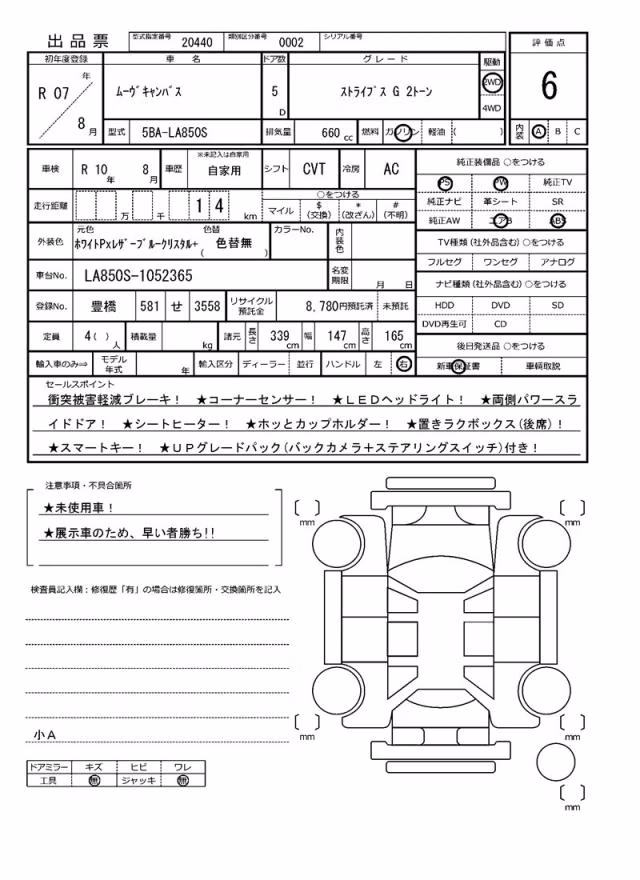 出品票
型式指定番号 20440 類別区分番号 0002 シリアル番号
初年度登録 車名 ドア数 グレード 駆動 評価点
R 07年 8月 ムーヴキャンバス 5D ストライプス G 2トーン 2WD 4WD 6
型式 5BA-LA850S 排気量 660 cc 燃料 ガソリン 軽油 ( ) 内装 A B C
車検 R 10年 8月 車歴 ※未記入は自家用 自家用 シフト CVT 冷房 AC
走行距離 万 千 1 4 km ○をつける
マイル $(交換) *(改ざん) #(不明)
外装色 元色 ホワイトPxレザーブルークリスタル+ 色替 ( 色替無 ) カラーNo. 内装色
車台No. LA850S-1052365 名変期限 月 日
登録No. 豊橋 581 せ 3558 リサイクル預託金 8,780円預託済 未預託
定員 4( )人 積載量 kg 諸元 長さ 339 cm 幅 147 cm 高さ 165 cm
輸入車のみ⇒ モデル年式 年 輸入区分 ディーラー 並行 ハンドル 左 右
純正装備品 ○をつける
PS PW 純正TV
純正ナビ 革シート SR
純正AW エアB ABS
TV種類(社外品含む)○をつける
フルセグ ワンセグ アナログ
ナビ種類(社外品含む)○をつける
HDD DVD SD
DVD再生可 CD
後日発送品 ○をつける
新車保証書 車輌取説
セールスポイント
衝突被害軽減ブレーキ! ★コーナーセンサー! ★LEDヘッドライト! ★両側パワースラ
イドドア! ★シートヒーター! ★ホッとカップホルダー! ★置きラクボックス(後席)!
★スマートキー! ★UPグレードパック(バックカメラ+ステアリングスイッチ)付き!
注意事項・不具合箇所
★未使用車!
★展示車のため、早い者勝ち!!
検査員記入欄:修復歴「有」の場合は修復箇所・交換箇所を記入
小A
ドアミラー キズ ヒビ ワレ
工具 無 ジャッキ 無
mm
mm
mm
mm
mm